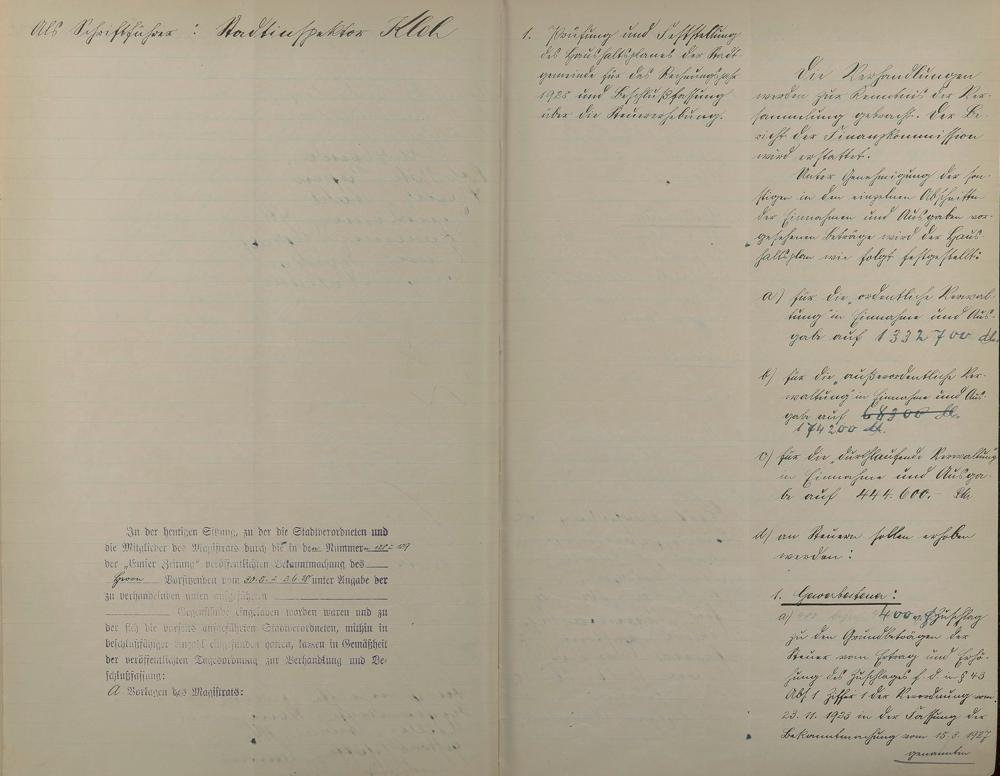 Als Schriftführer: Stadtinspektor Kloh
In der heutigen Sitzung, zu der die Stadtverordneten und
die Mitglieder des Magistrats durch die in den Nummern 128 - 129
der „Emser Zeitung" veröffentlichten Bekanntmachung des
Herrn Vorsitzenden vom unter Angabe der
zu verhandelnden unten aufgeführten
Gegenstände eingeladen worden waren und zu
der sich die vorseits aufgeführten Stadtverordneten, mithin in
beschlußfähiger Anzahl eingefunden hatten, kamen in Gemäßheit
der veröffentlichten Tagesordnung zur Verhandlung und Be-
schlußfassung:
A. Vorlagen des Magistrats:
1. Prüfung und Feststellung
des Haushaltsplanes der Stadt
gemeinde für das Rechnungsjahr
1928 und Beschlußfassung
über die Steuererhebung.
Die Verhandlungen
werden zur Kenntnis der Ver-
sammlung gebracht. Der Be-
richt der Finanzkommission
wird erstattet.
Unter Genehmigung der son-
stigen in den einzelnen Abschnitten
der Einnahmen und Ausgaben vor-
gesehenen Beträge wird der Haus-
haltsplan wie folgt festgestellt:
a) für die „ordentliche Verwal-
tung" in Einnahme und Aus-
gabe auf 1332700 M.
b) für die „außerordentliche Ver-
waltung" in Einnahme und Aus-
gabe auf 68300 M.
174200 M.
c) für die „durchlaufende Verwaltung
in Einnahme und Ausga-
be auf 444.600.- M
d) an Steuern sollen erhoben
werden:
1. Gewerbesteuer:
a) 400 v. H. Zuschlag
zu den Grundbeträgen der
Steuer vom Ertrag und Erhö-
hung des Zuschlages f. d. in § 43
Abs. 1 Ziffer 1 der Verordnung vom
23. 11. 1923 in der Fassung der
Bekanntmachung vom 15. 3. 1927
genannten